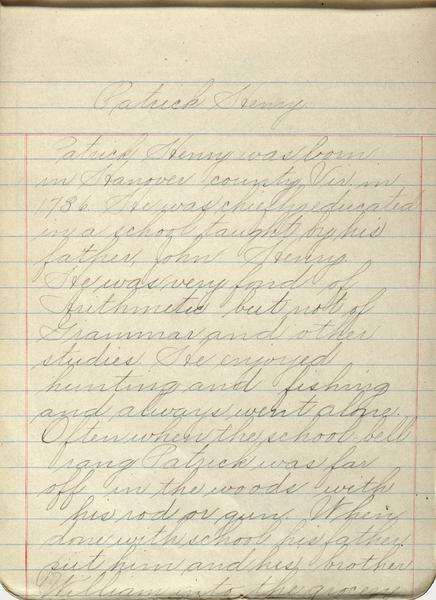 Patrick Henry
Patrick Henry was born
in Hanover county, Vir. in
1736. He was chiefly educated
in a school taught by his
father, John Henry.
He was very fond of
Arithmetic but not of
Grammar and other
studies. He enjoyed
hunting and fishing
and always went alone.
Often when the school-bell
rang Patrick was far
off in the woods with
his rod or gun. When
done with school his father
put him and his brother
William into the grocery